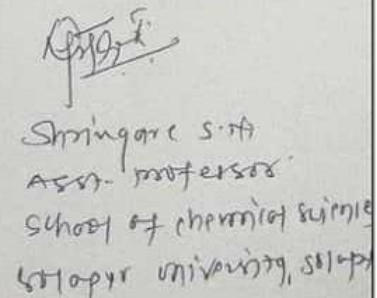 Shringare S.N
Asst. Professor
School of chemical science
Solapur university, Solapu